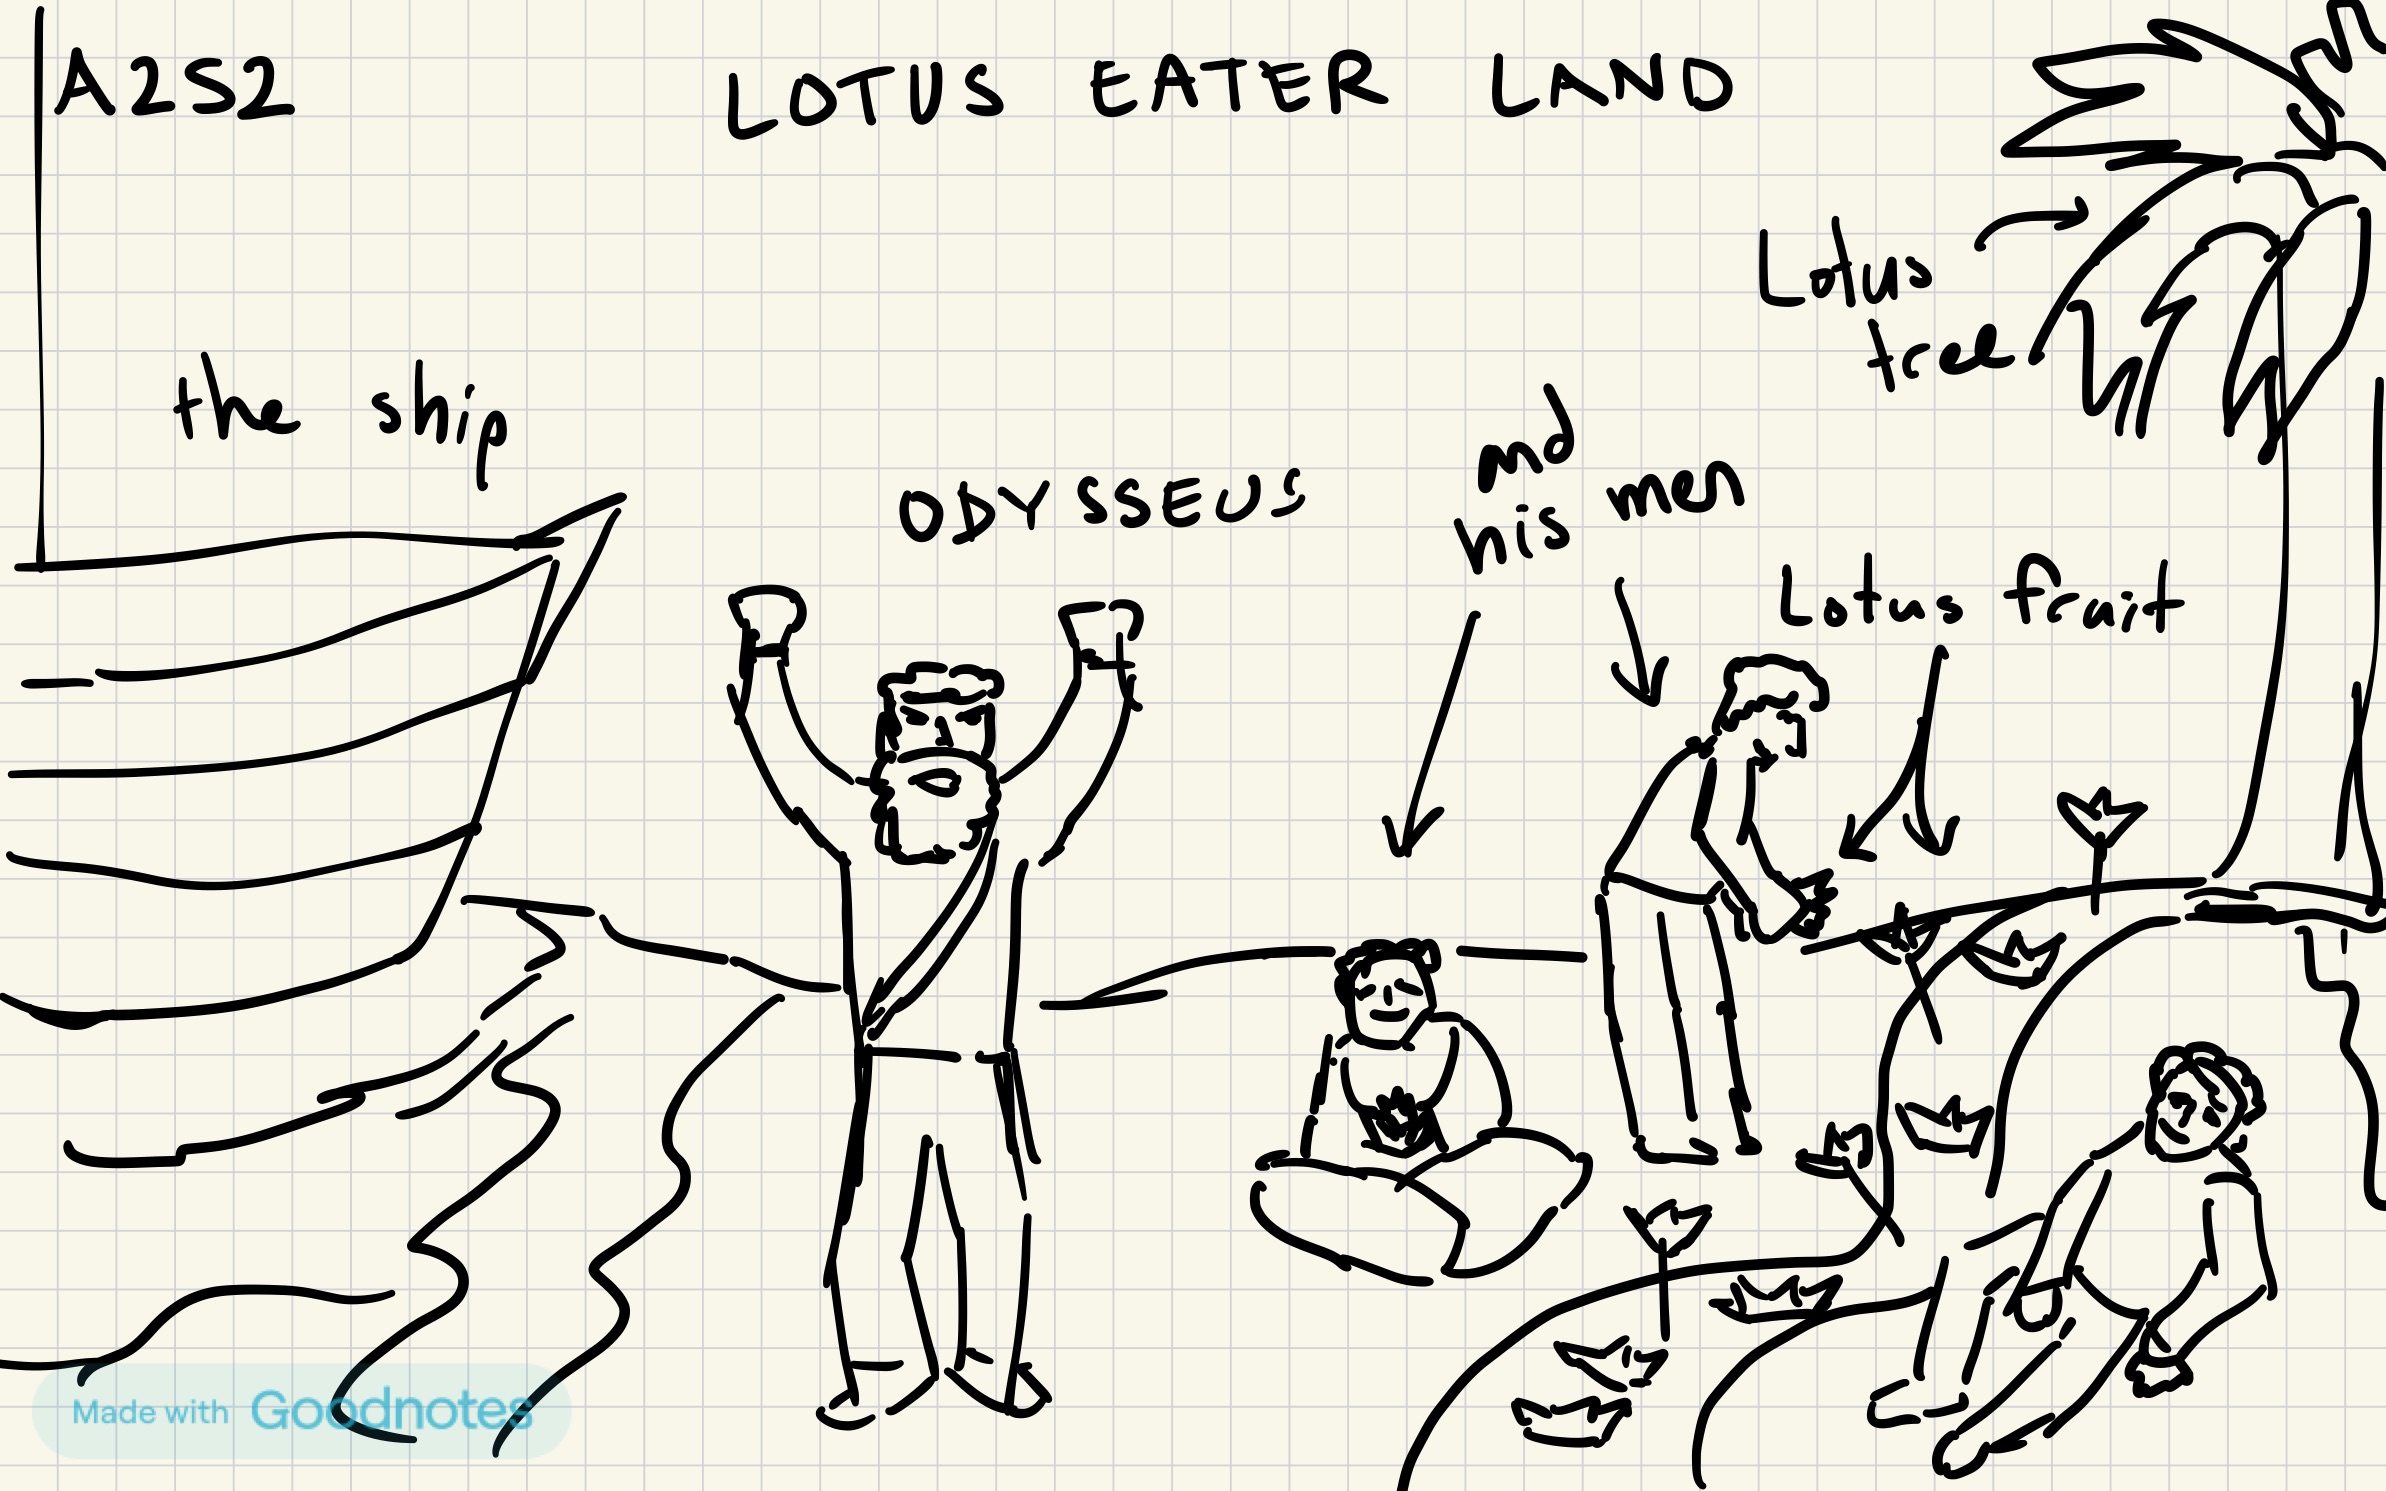 A2S2
LOTUS EATER LAND
Lotus
tree
the ship
ODYSSEUS
and
his men
Lotus fruit
Made with Goodnotes